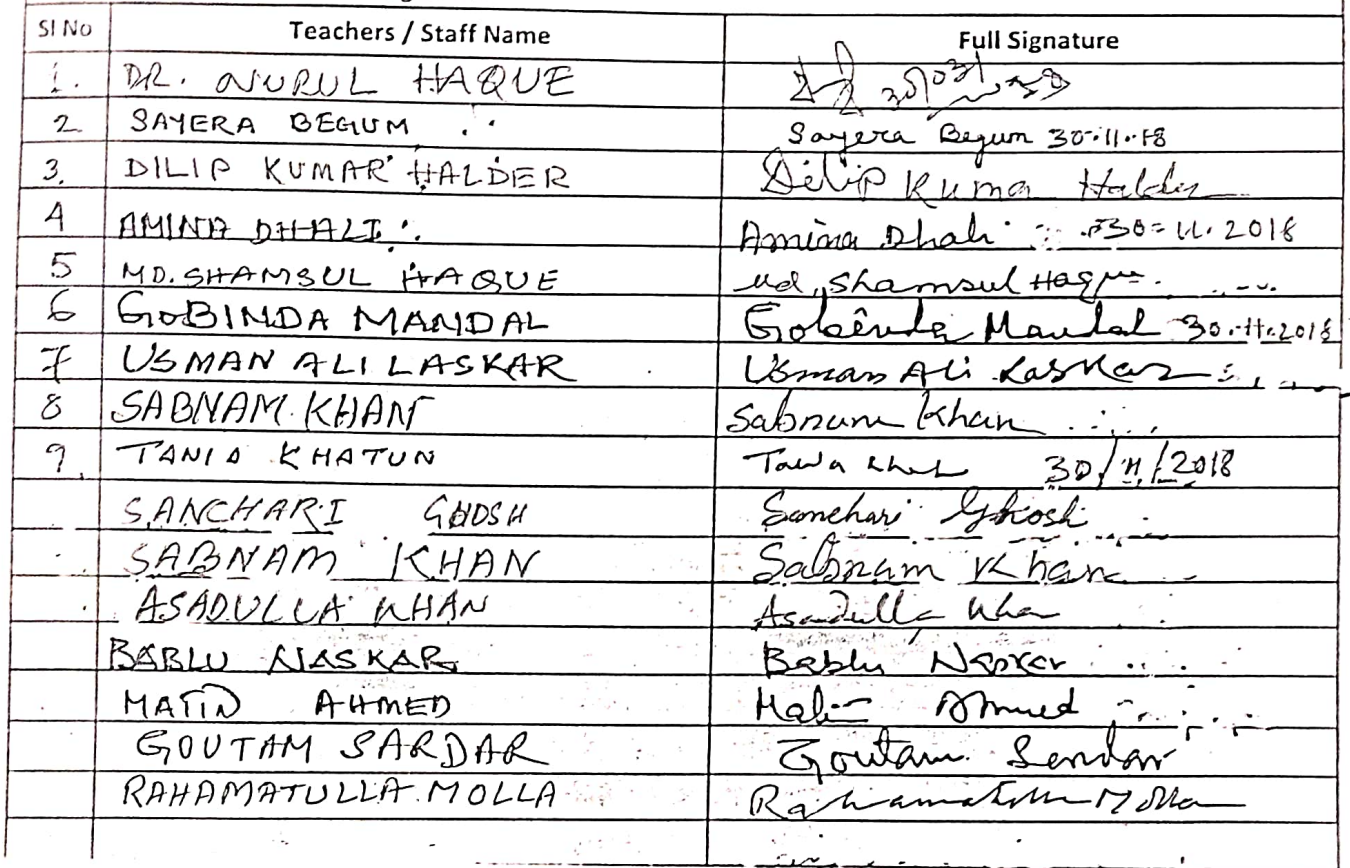 Sl No Teachers / Staff Name Full Signature
1. DR. NURUL HAQUE
2 SAYERA BEGUM Sayera Begum 30.11.18
3. DILIP KUMAR HALDER Dilip Kuma Halder
4 AMINA DHALI Amina Dhali 30-11.2018
5 MD. SHAMSUL HAQUE Md. Shamsul Haque
6 GOBINDA MANDAL Gobinda Mandal 30.11.2018
7 USMAN ALI LASKAR Usman Ali Laskar
8 SABNAM KHAN Sabnam Khan
9. TANIA KHATUN 30/11/2018
SANCHARI GHOSH Sanchari Ghosh
SABNAM KHAN Sabnam Khan
ASADULLA KHAN Asadulla Khan
BABLU NASKAR Bablu Naskar
MATIN AHMED Matin Ahmed
GOUTAM SARDAR Goutam Sardar
RAHAMATULLA MOLLA Rahamatulla Molla